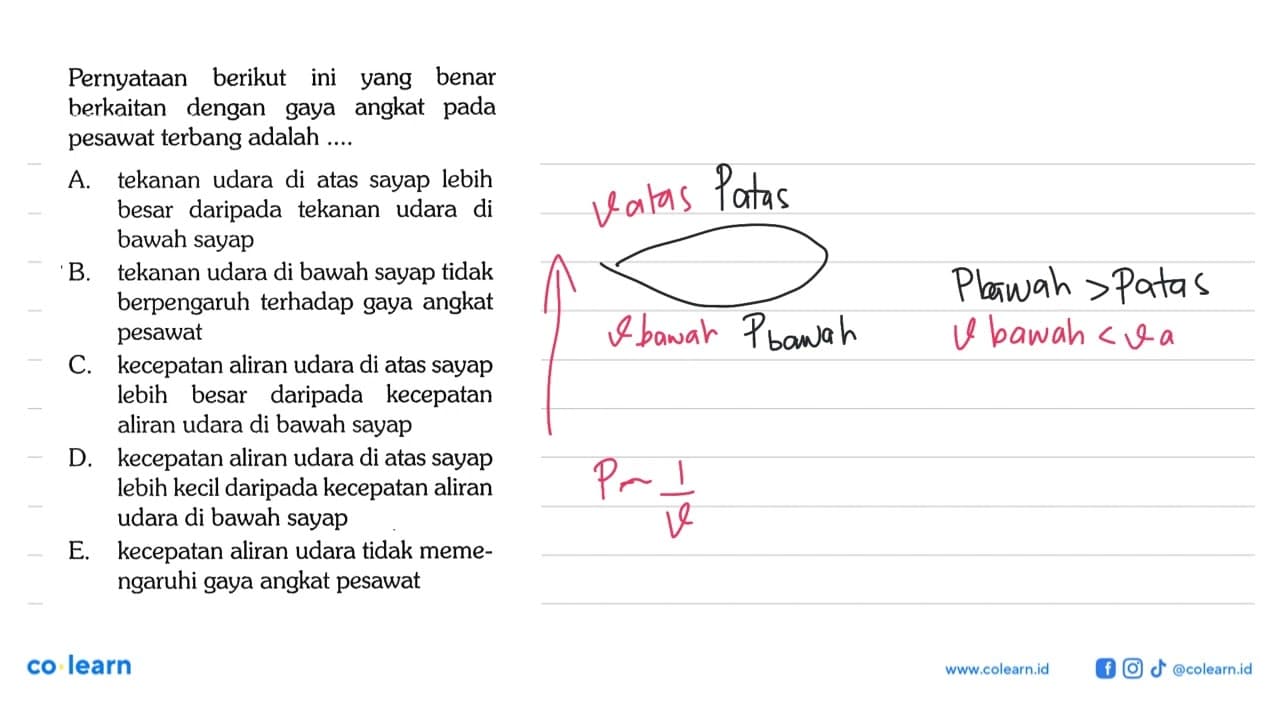 Pernyataan berikut ini yang benar
berkaitan dengan gaya angkat pada
pesawat terbang adalah ....
A. tekanan udara di atas sayap lebih
besar daripada tekanan udara di
bawah sayap
B. tekanan udara di bawah sayap tidak
berpengaruh terhadap gaya angkat
pesawat
C. kecepatan aliran udara di atas sayap
lebih besar daripada kecepatan
aliran udara di bawah sayap
D. kecepatan aliran udara di atas sayap
lebih kecil daripada kecepatan aliran
udara di bawah sayap
E. kecepatan aliran udara tidak meme-
ngaruhi gaya angkat pesawat
v atas P atas
v bawah P bawah
P bawah > P atas
v bawah < v a
P ~ 1/v
co learn
www.colearn.id @colearn.id